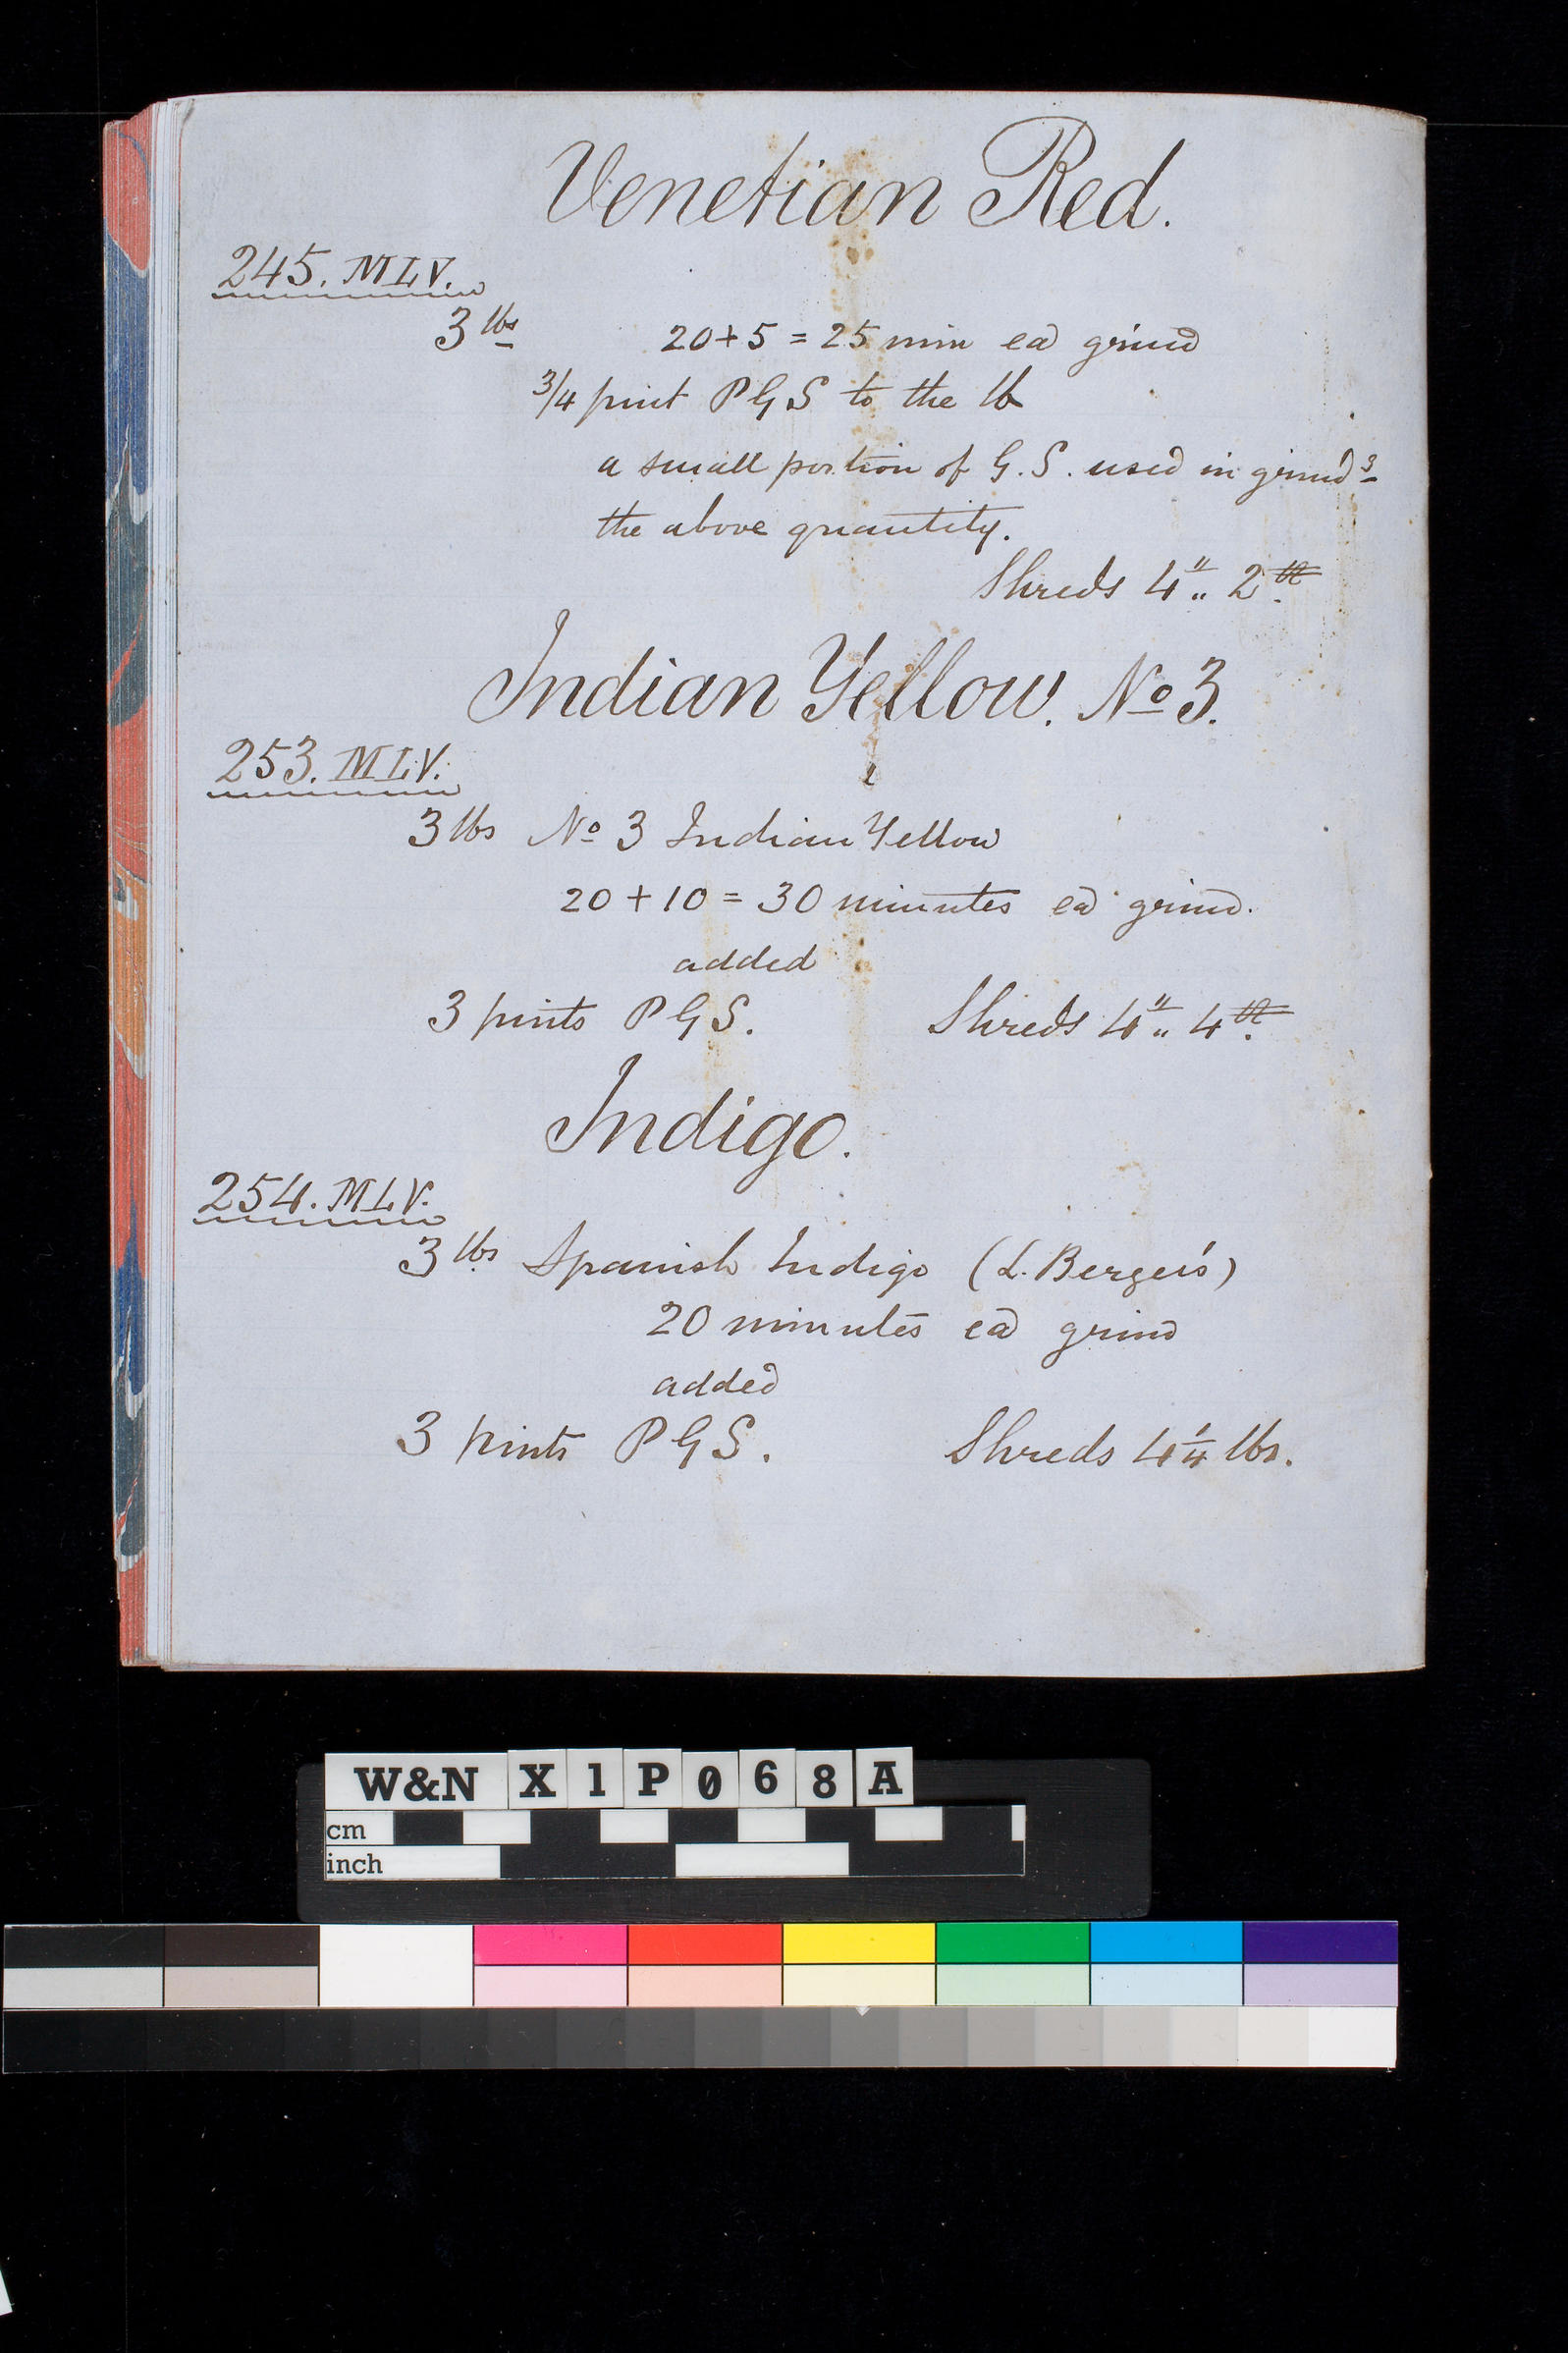 Venetian Red.
245. MLV.
3 lbs 20+5 = 25 min ea grind
3/4 pint P G S to the lb
a small portion of G. S. used in grindg
the above quantity.
Shreds 4 " 2
Indian Yellow. No 3.
253. MLV.
3 lbs No 3 Indian Yellow
20 + 10 = 30 minutes ea grind.
added
3 pints P G S. Shreds 4 " 4
Indigo.
254. MLV.
3 lbs Spanish Indigo (L. Berger's)
20 minutes ea grind
added
3 pints P G S. Shreds 4 1/4 lbs.
W&N X1P068A
cm
inch